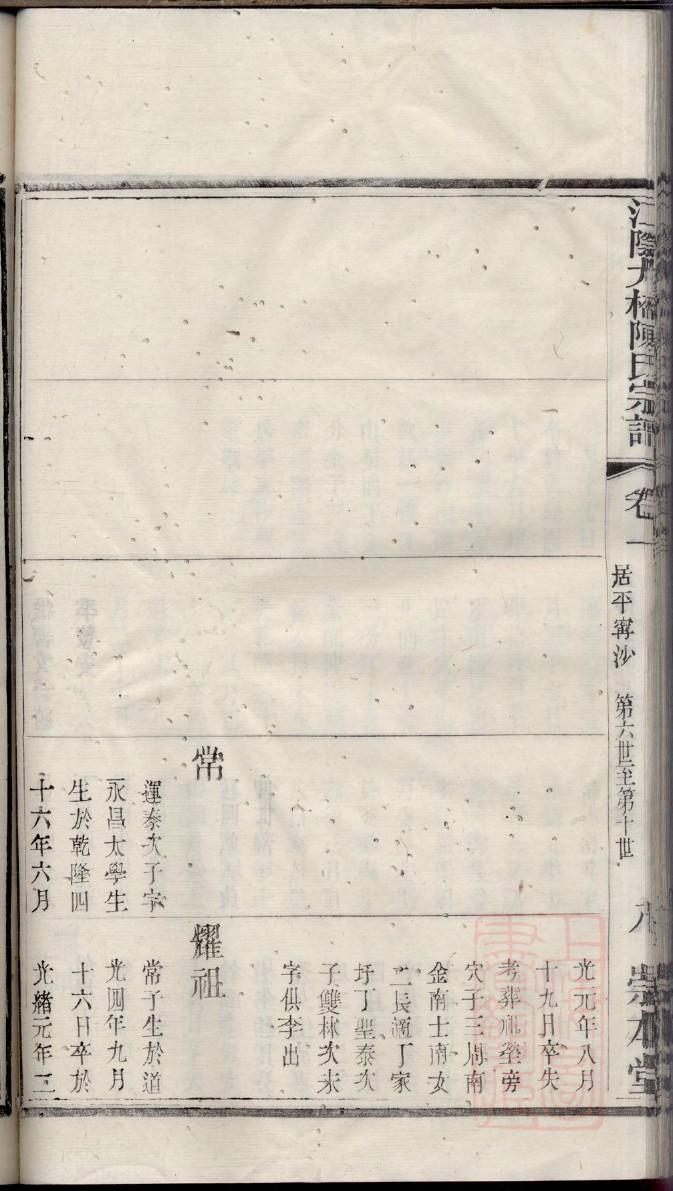 江陰大橋陳氏宗譜
卷一
居平甯沙 第六世至第十世
八 崇本堂
常
運泰次子字
永昌太學生
生於乾隆四
十六年六月
光元年八月
十九日卒失
考葬祖塋旁
穴子三周南
金南士南女
二長適丁家
圩丁聖泰次
子雙林次未
字俱李出
耀祖
常子生於道
光四年九月
十六日卒於
光緒元年三